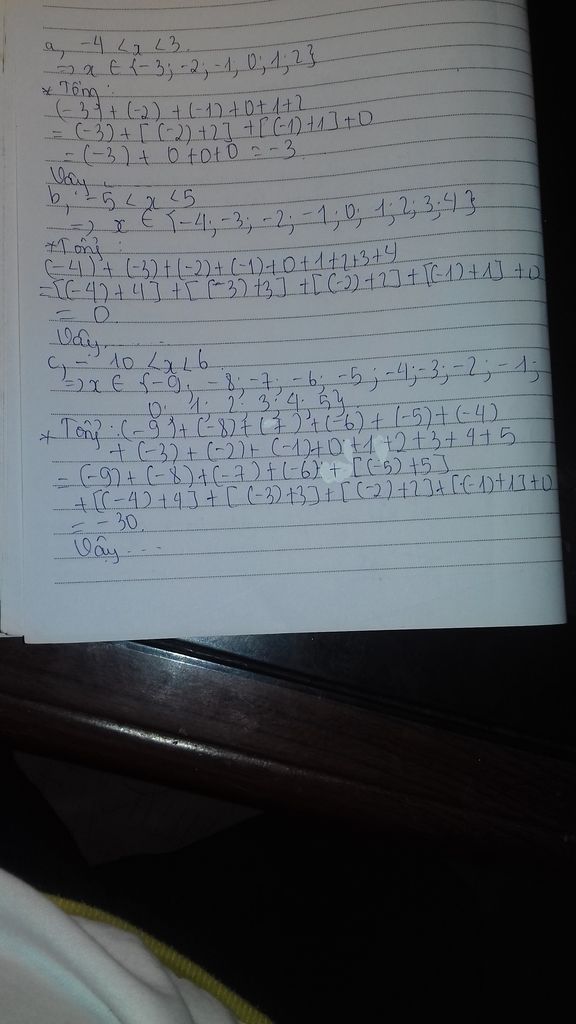 a, -4 < x < 3.
=> x ∈ {-3; -2; -1, 0; 1; 2}
* Tổng:
(-3) + (-2) + (-1) + 0 + 1 + 2
= (-3) + [(-2) + 2] + [(-1) + 1] + 0
= (-3) + 0 + 0 + 0 = -3
Vậy ...
b, -5 < x < 5
=> x ∈ {-4; -3; -2; -1; 0; 1; 2; 3; 4}
* Tổng:
(-4) + (-3) + (-2) + (-1) + 0 + 1 + 2 + 3 + 4
= [(-4) + 4] + [(-3) + 3] + [(-2) + 2] + [(-1) + 1] + 0
= 0
Vậy ...
c, -10 < x < 6
=> x ∈ {-9; -8; -7; -6; -5; -4; -3; -2; -1;
0; 1; 2; 3; 4; 5}
* Tổng: (-9) + (-8) + (-7) + (-6) + (-5) + (-4)
+ (-3) + (-2) + (-1) + 0 + 1 + 2 + 3 + 4 + 5
= (-9) + (-8) + (-7) + (-6) + [(-5) + 5]
+ [(-4) + 4] + [(-3) + 3] + [(-2) + 2] + [(-1) + 1] + 0
= -30.
Vậy ...